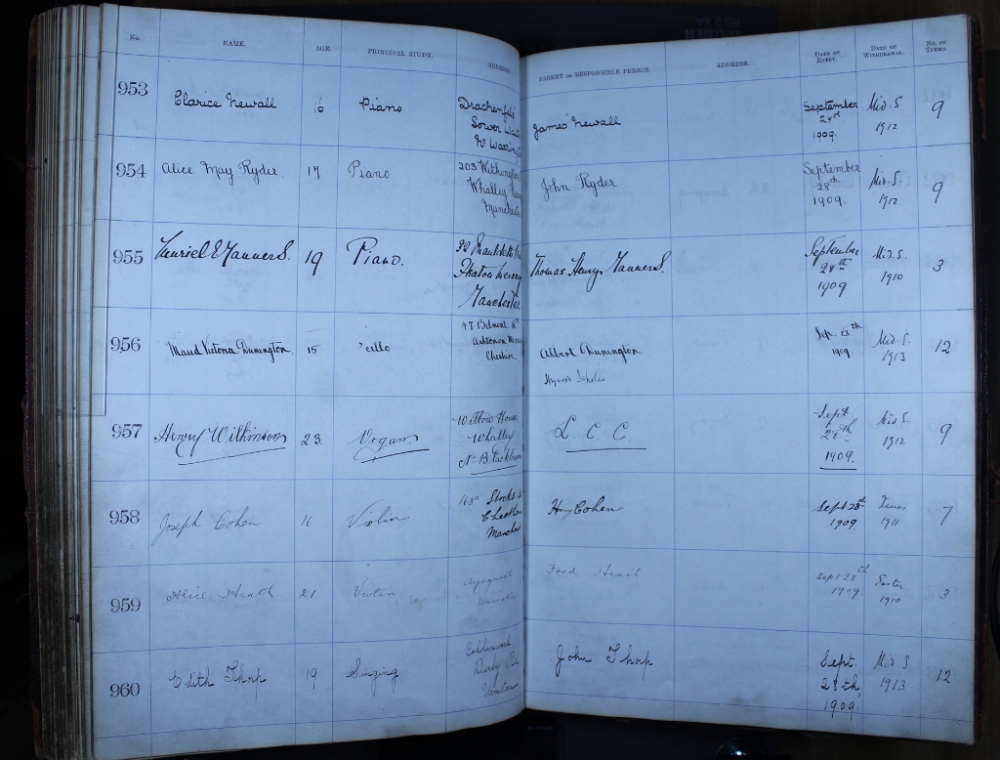 No. NAME. AGE PRINCIPAL STUDY. ADDRESS. PARENT OR RESPONSIBLE PERSON. ADDRESS. DATE OF ENTRY. DATE OF WITHDRAWAL. NO. OF TERMS.
953 Clarice Newall Piano James Newall September 28th 1909. Mid. S 1912 9
954 Alice May Ryder 17 Piano 203 Whalley Manchester John Ryder September 28th 1909. Mid. S. 1912 9
955 19 Piano. Manchester Thomas Henry Manners. September 28th 1909 Mid. S. 1910 3
956 Maud Victoria Dunnington 15 'cello 47 Belmont Rd Cheshire Albert Dunnington Scholar Sep. 1909 Mid. S. 1913 12
957 Henry Wilkinson 23 Organ House Whalley Nr Blackburn L. C. C. Sept 28th 1909. Mid S. 1912 9
958 Joseph Cohen 16 Violin Hy Cohen Sept 28th 1909 Xmas 1911 7
959 Alice Heath 21 Violin Fred Heath Sept 28th 1909 Easter 1910 3
960 Edith Thorp 19 Singing John Thorp Sept. 28th, 1909. Mid. S 1913 12